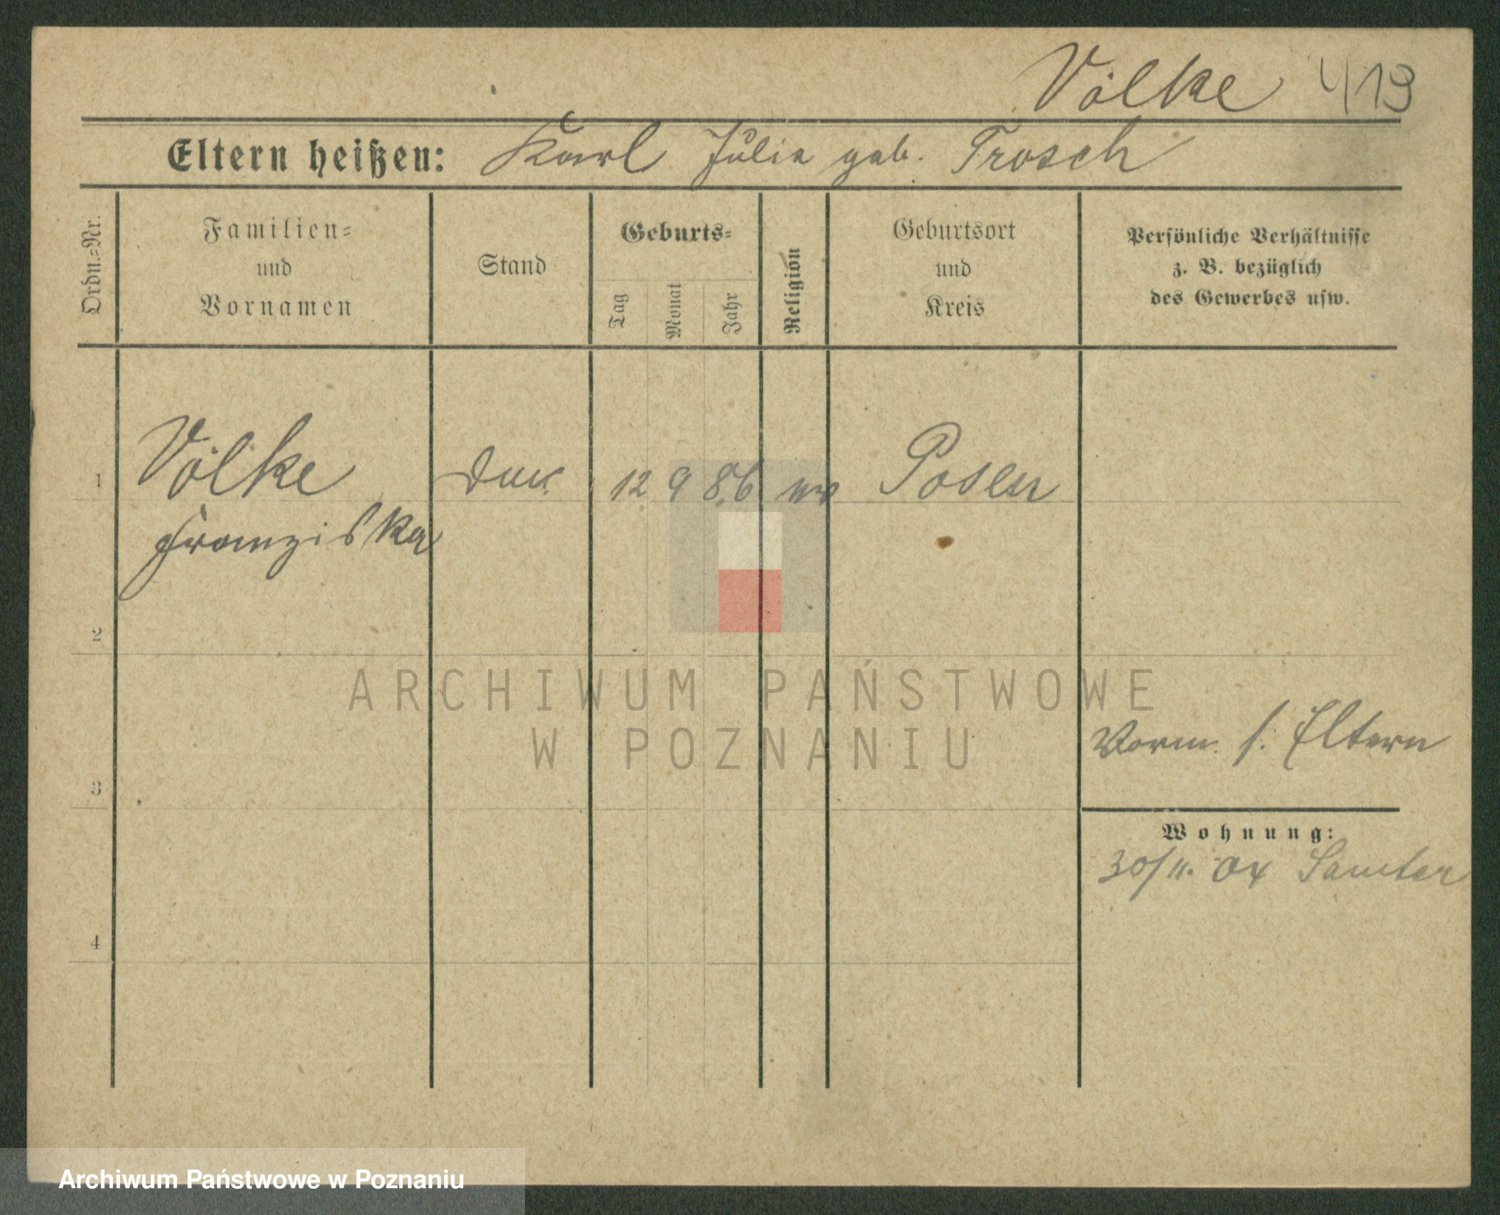 Völke 419
Eltern heißen: Karl Julia geb. Trosch
Ordn.-Nr.
Familien-
und
Vornamen
Stand
Geburts-
Tag
Monat
Jahr
Religion
Geburtsort
und
Kreis
Persönliche Verhältnisse
z. B. bezüglich
des Gewerbes usw.
1 Völke 12 9 86 Posen
Franziska
2
3
4
ARCHIWUM PAŃSTWOWE
W POZNANIU
Vorm. s. Eltern
Wohnung:
30/11. 04 Samter
Archiwum Państwowe w Poznaniu